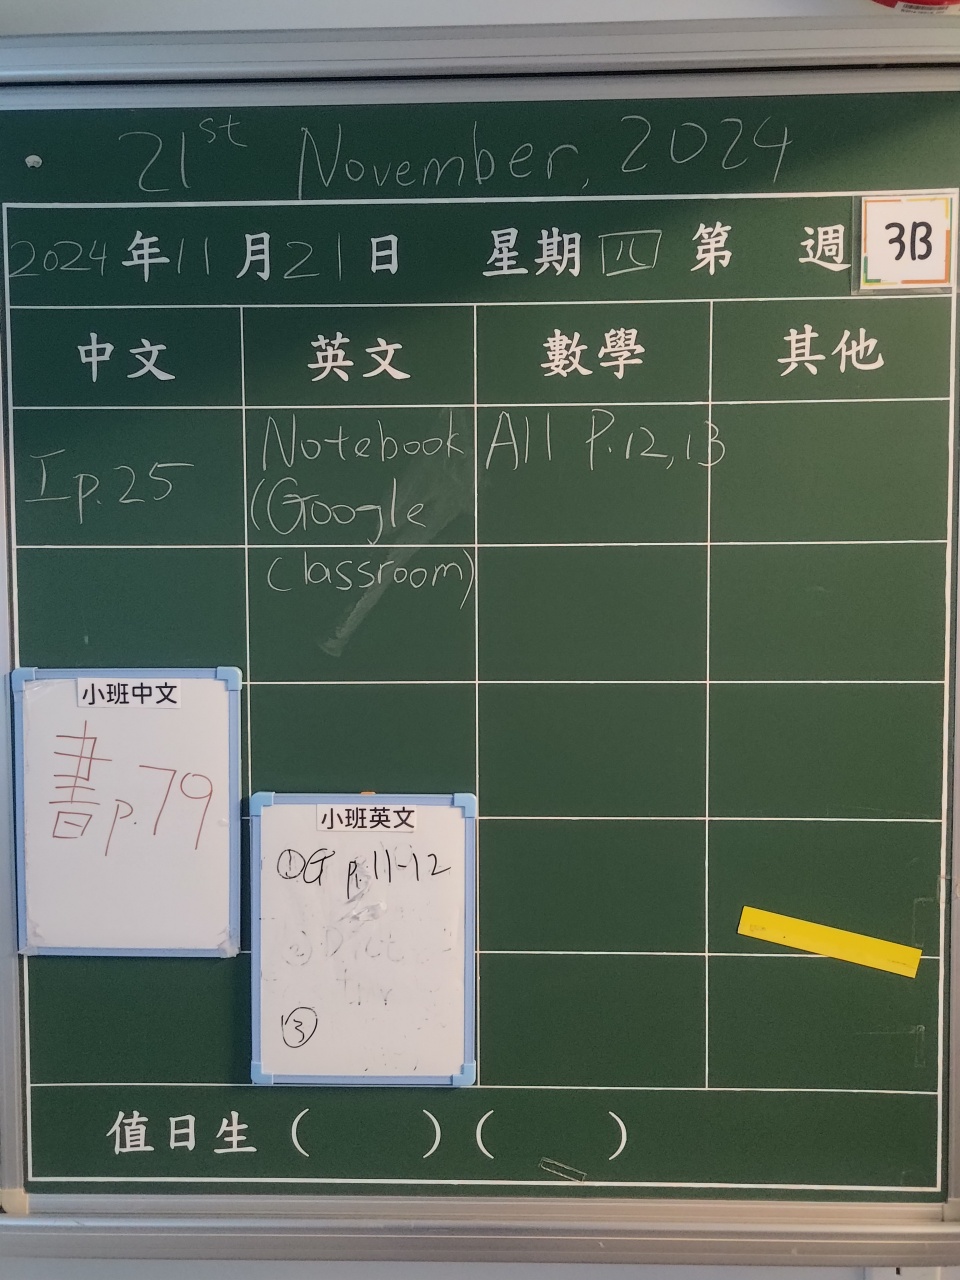 21st November, 2024
2024年11月21日 星期四 第 週 3B
中文 英文 數學 其他
I p.25
Notebook
(Google
Classroom)
All P.12,13
小班中文
書 p.79
小班英文
①G p.11-12
2) Dict
③
值日生 ( ) ( )